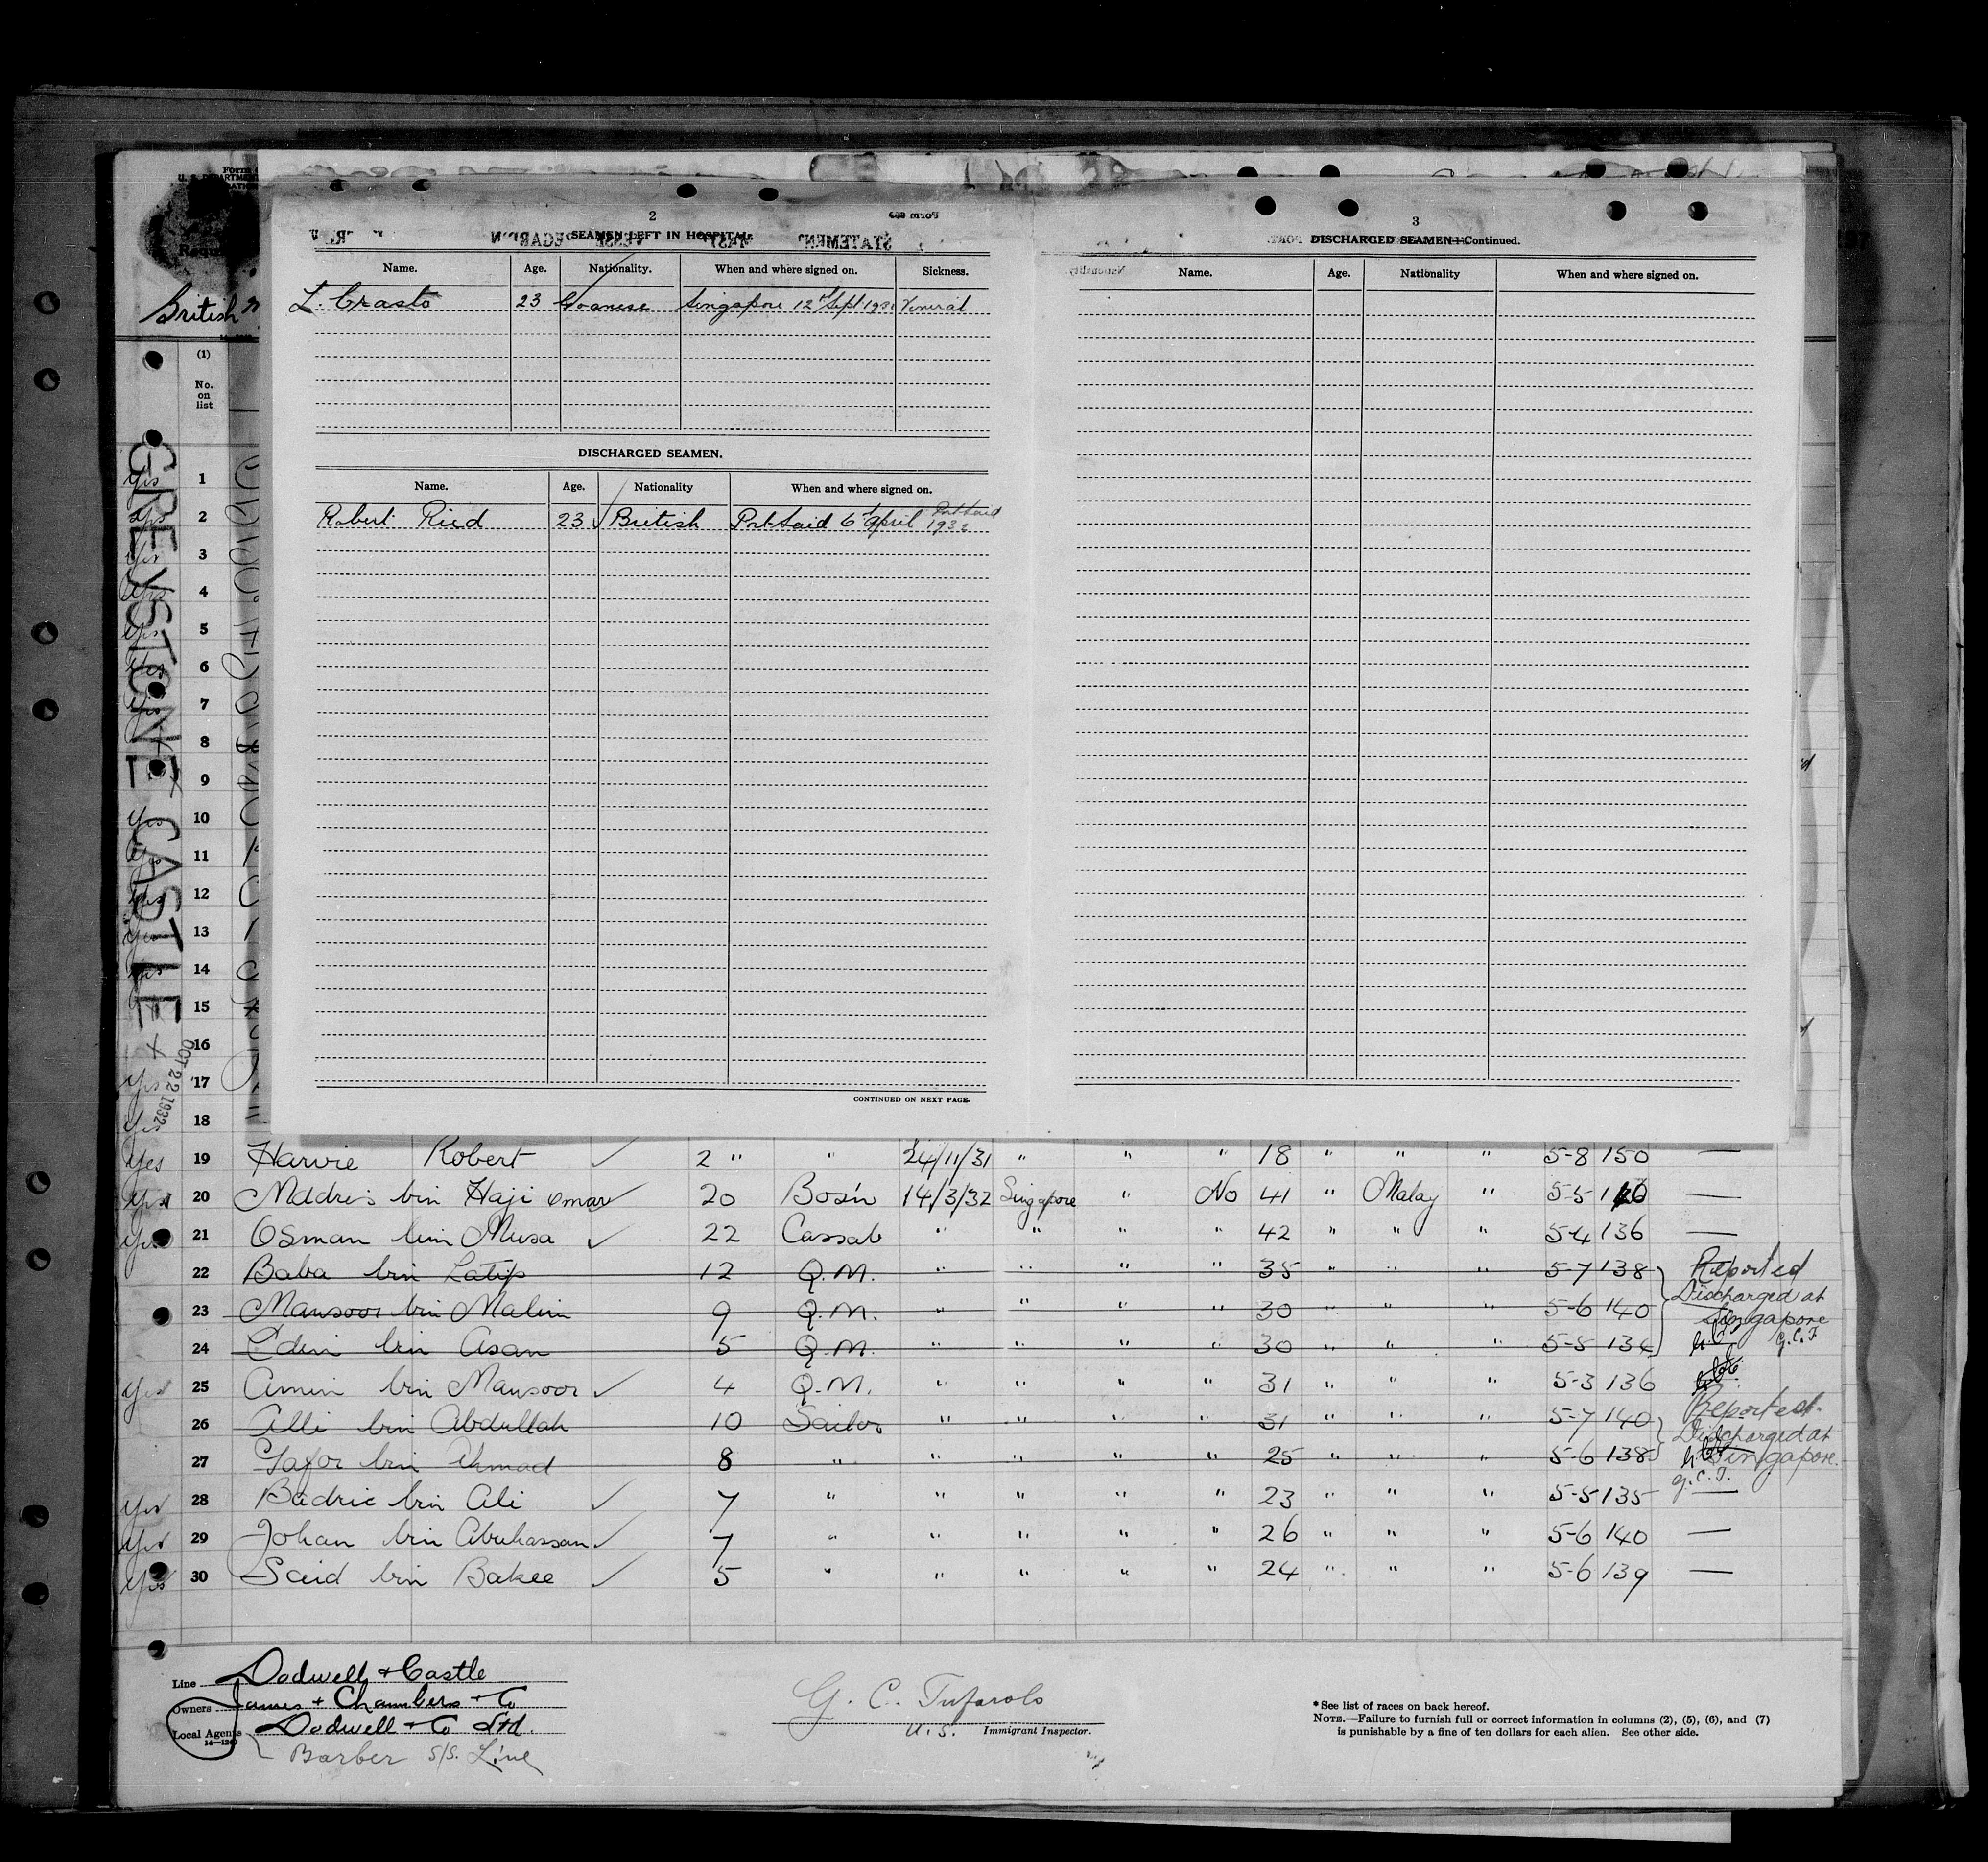 Form
U. S. DEPARTMENT
British
(1)
No.
on
list
GREYSTONE CASTLE
OCT 22 1932
2
SEAMEN LEFT IN HOSPITAL.
Name. Age. Nationality. When and where signed on. Sickness.
L. Crasto 23 Goanese Singapore 12th Sept 1931 Veneral
DISCHARGED SEAMEN.
Name. Age. Nationality When and where signed on.
Robert Ried 23 British Port Said 6th April 1932 Port Said
CONTINUED ON NEXT PAGE.
3
DISCHARGED SEAMEN—Continued.
Name. Age. Nationality When and where signed on.
Yes 1
Yes 2
Yes 3
Yes 4
Yes 5
Yes 6
Yes 7
8
9
Yes 10
Yes 11
Yes 12
Yes 13
Yes 14
15
+ 16
Yes 17
Yes 18
Yes 19 Harvie Robert ✓ 2 " " 24/11/31 " " " 18 " " " 5-8 150 —
Yes 20 Mddris bin Haji Omar ✓ 20 Bos'n 14/3/32 Singapore " No 41 " Malay " 5-5 —
Yes 21 Osman bin Musa ✓ 22 Cassab " " " " 42 " " " 5-4 136 —
22 Baba bin Latip 12 Q.M. " " " " 35 " " " 5-7 138 Reported
23 Mansoor bin Malim 9 Q.M. " " " " 30 " " " 5-6 140 Discharged at
Singapore
24 Edin bin Asan 5 Q.M. " " " " 30 " " " 5-5 134 G.C.T
Yes 25 Amin bin Mansoor ✓ 4 Q.M. " " " " 31 " " " 5-3 136
26 Alli bin Abdullah 10 Sailor " " " " 31 " " " 5-7 140 Reported
Discharged at
27 Gafor bin Ahmad 8 " " " " " 25 " " " 5-6 138 Singapore.
G.C.T.
Yes 28 Badric bin Ali ✓ 7 " " " " " 23 " " " 5-5 135 —
Yes 29 Johan bin Abuhassan ✓ 7 " " " " " 26 " " " 5-6 140 —
Yes 30 Said bin Bakee ✓ 5 " " " " " 24 " " " 5-6 139 —
Line Dodwell & Castle
Owners James & Chambers & Co
Local Agents Dodwell & Co Ltd.
14—1240
Barber S/S. Line
G. C. Tufarolo
U.S. Immigrant Inspector.
* See list of races on back hereof.
NOTE.—Failure to furnish full or correct information in columns (2), (5), (6), and (7)
is punishable by a fine of ten dollars for each alien. See other side.